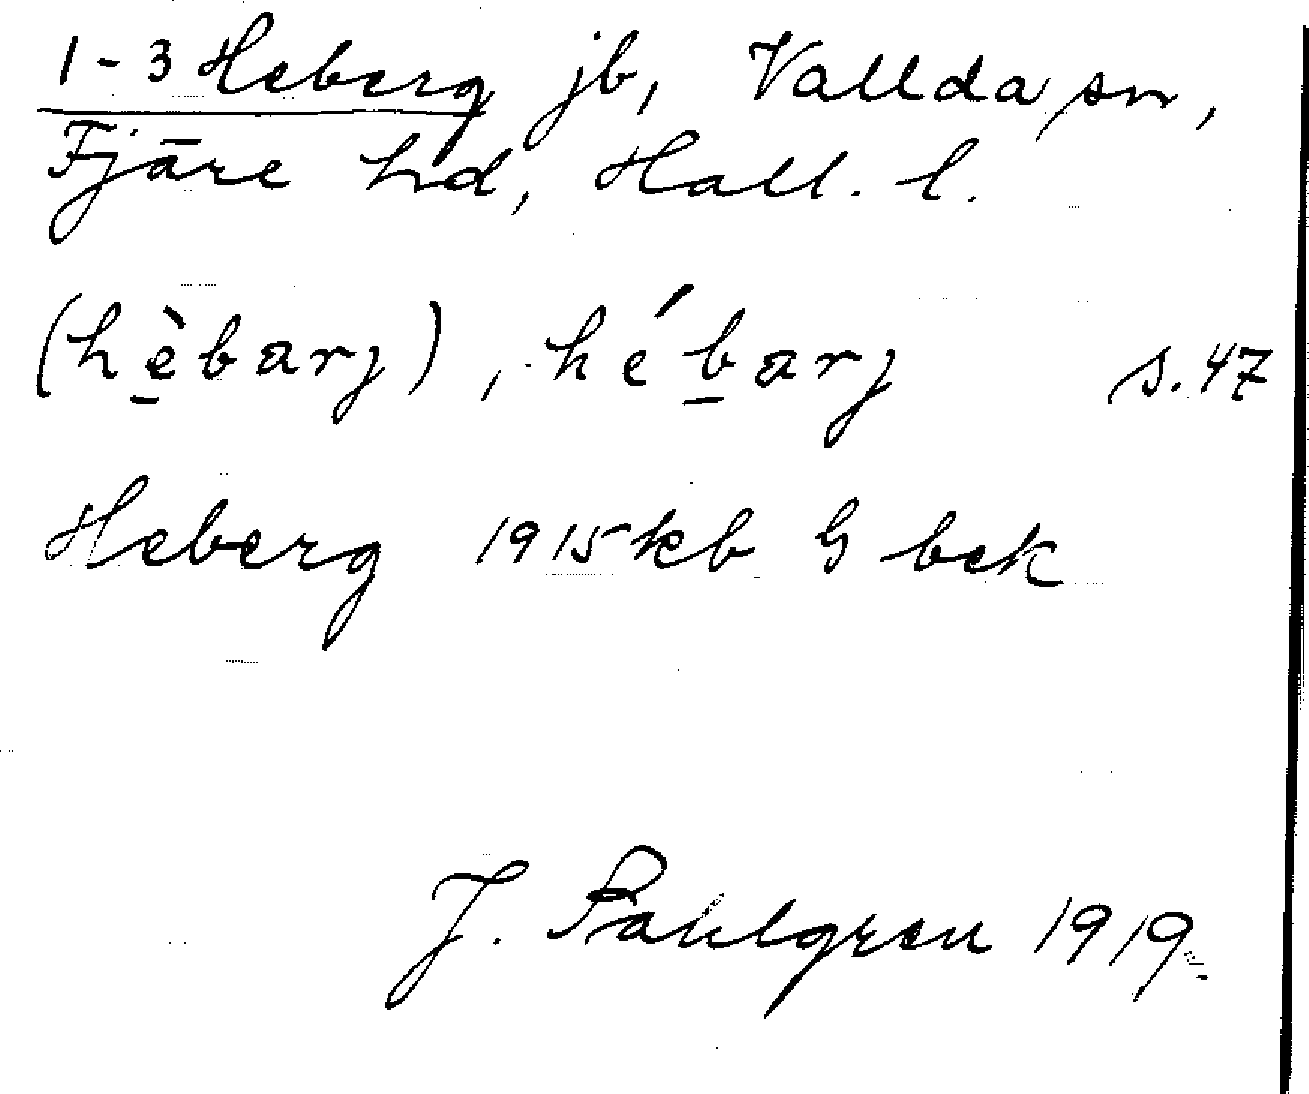 1-3 Heberg jb, Vallda sn,
Fjäre hd, Hall. l.
(hèbarj), hébarj s. 47
Heberg 1915 kb G bek
J. Pahlgren 1919.